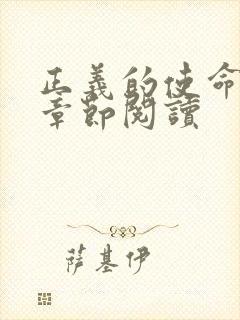 正義的使命
章節閱讀
薩基伊